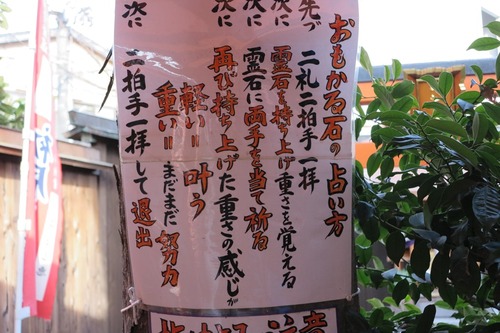 おもかる石の占い方
先づ 二礼二拍手一拝
次に 霊石を持ち上げ重さを覚える
次に 霊石に両手を当て祈る
次に 再び持ち上げた重さの感じが
軽い＝叶う
重い＝まだまだ努力
次に 二拍手一拝して退出